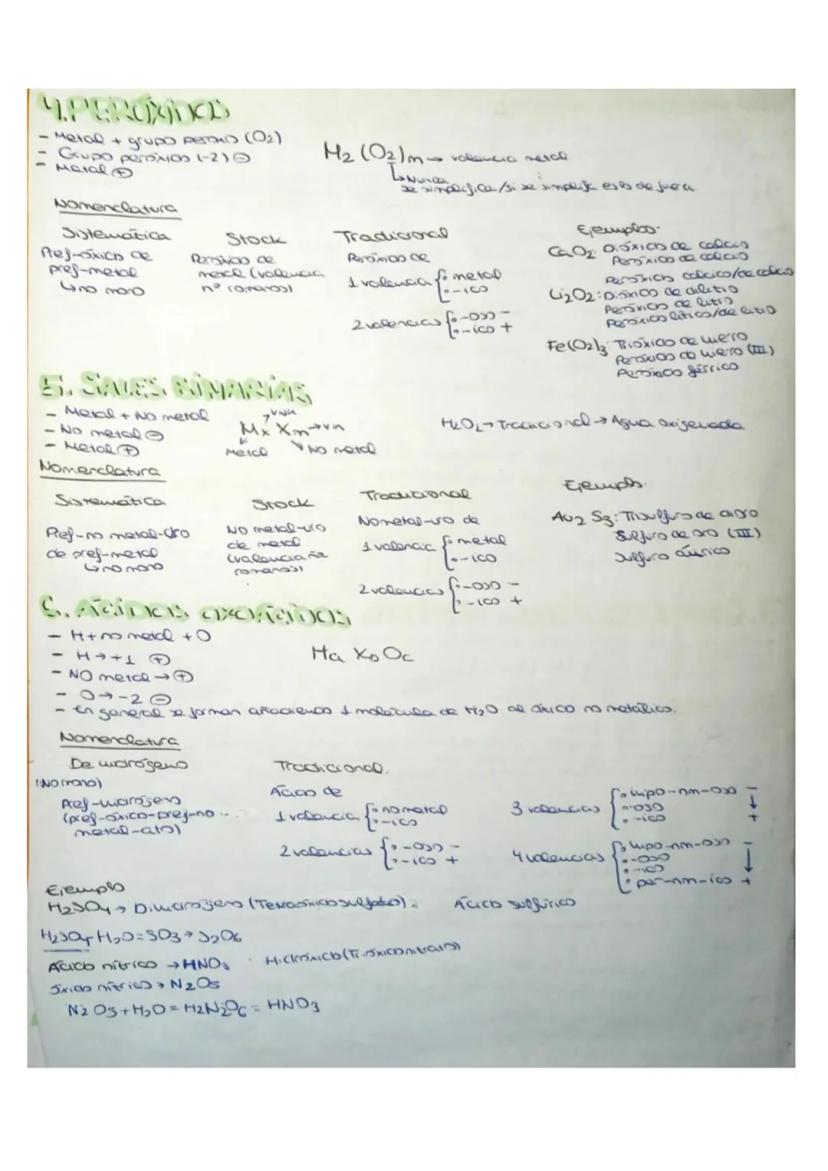 4. PERÓXIDOS
- Metal + grupo peróxido (O2)
- Grupo peróxidos (-2) ⊖
- Metal ⊕
M2 (O2)m → valencia metal
↳ Nunca
se simplifica/si se simplifica es de fuera
Nomenclatura
Sistemática Stock Tradicional Ejemplos:
Pref-óxico de
pref-metal
↳ no mono
Peróxido de
metal (valencia
nº romanos)
Peróxido de
1 valencia { metal
-ico
2 valencias { -oso -
-ico +
CaO2: Dióxico de calcio
Peróxido de calcio
Peróxido cálcico/de calcio
Li2O2: Dióxico de dilitio
Peróxido de litio
Peróxido lítico/de litio
Fe(O2)3: Trióxico de hierro
Peróxido de hierro (III)
Peróxido férrico
5. SALES BINARIAS
- Metal + No metal
- No metal ⊖
- Metal ⊕
Mx Xm
Metal No metal
H2O2 → Tradicional → Agua oxigenada
Nomenclatura
Sistemática Stock Tradicional Ejemplo:
Pref-no metal-uro
de pref-metal
↳ no mono
No metal-uro
de metal
(valencia nº
romanos)
No metal-uro de
1 valencia { metal
-ico
2 valencias { -oso -
-ico +
Au2 S3: Trisulfuro de dioro
Sulfuro de oro (III)
Sulfuro áurico
6. ÁCIDOS OXOÁCIDOS
- H + no metal + O
- H → +1 ⊕
- NO metal → ⊕
- O → -2 ⊖
- En general se forman añadiendo 1 molécula de H2O al óxico no metálico.
Ha Xb Oc
Nomenclatura
De hidrógeno Tradicional.
(No mono)
Pref-hidrógeno
(pref-óxico-pref-no
metal-ato)
Ácido de
1 valencia { no metal
-ico
2 valencias { -oso -
-ico +
3 valencias { hipo-nm-oso -
-oso ↓
-ico +
4 valencias { hipo-nm-oso -
-oso
-ico ↓
per-nm-ico +
Ejemplo
H2SO4 → Dihidrógeno (Tetraóxicosulfato). Ácico sulfúrico
H2SO4 - H2O = SO3 → S2O6
Ácido nítrico → HNO3 Hidróxico (Trióxiconitrato)
óxido nítrico → N2O5
N2O5 + H2O = H2N2O6 = HNO3